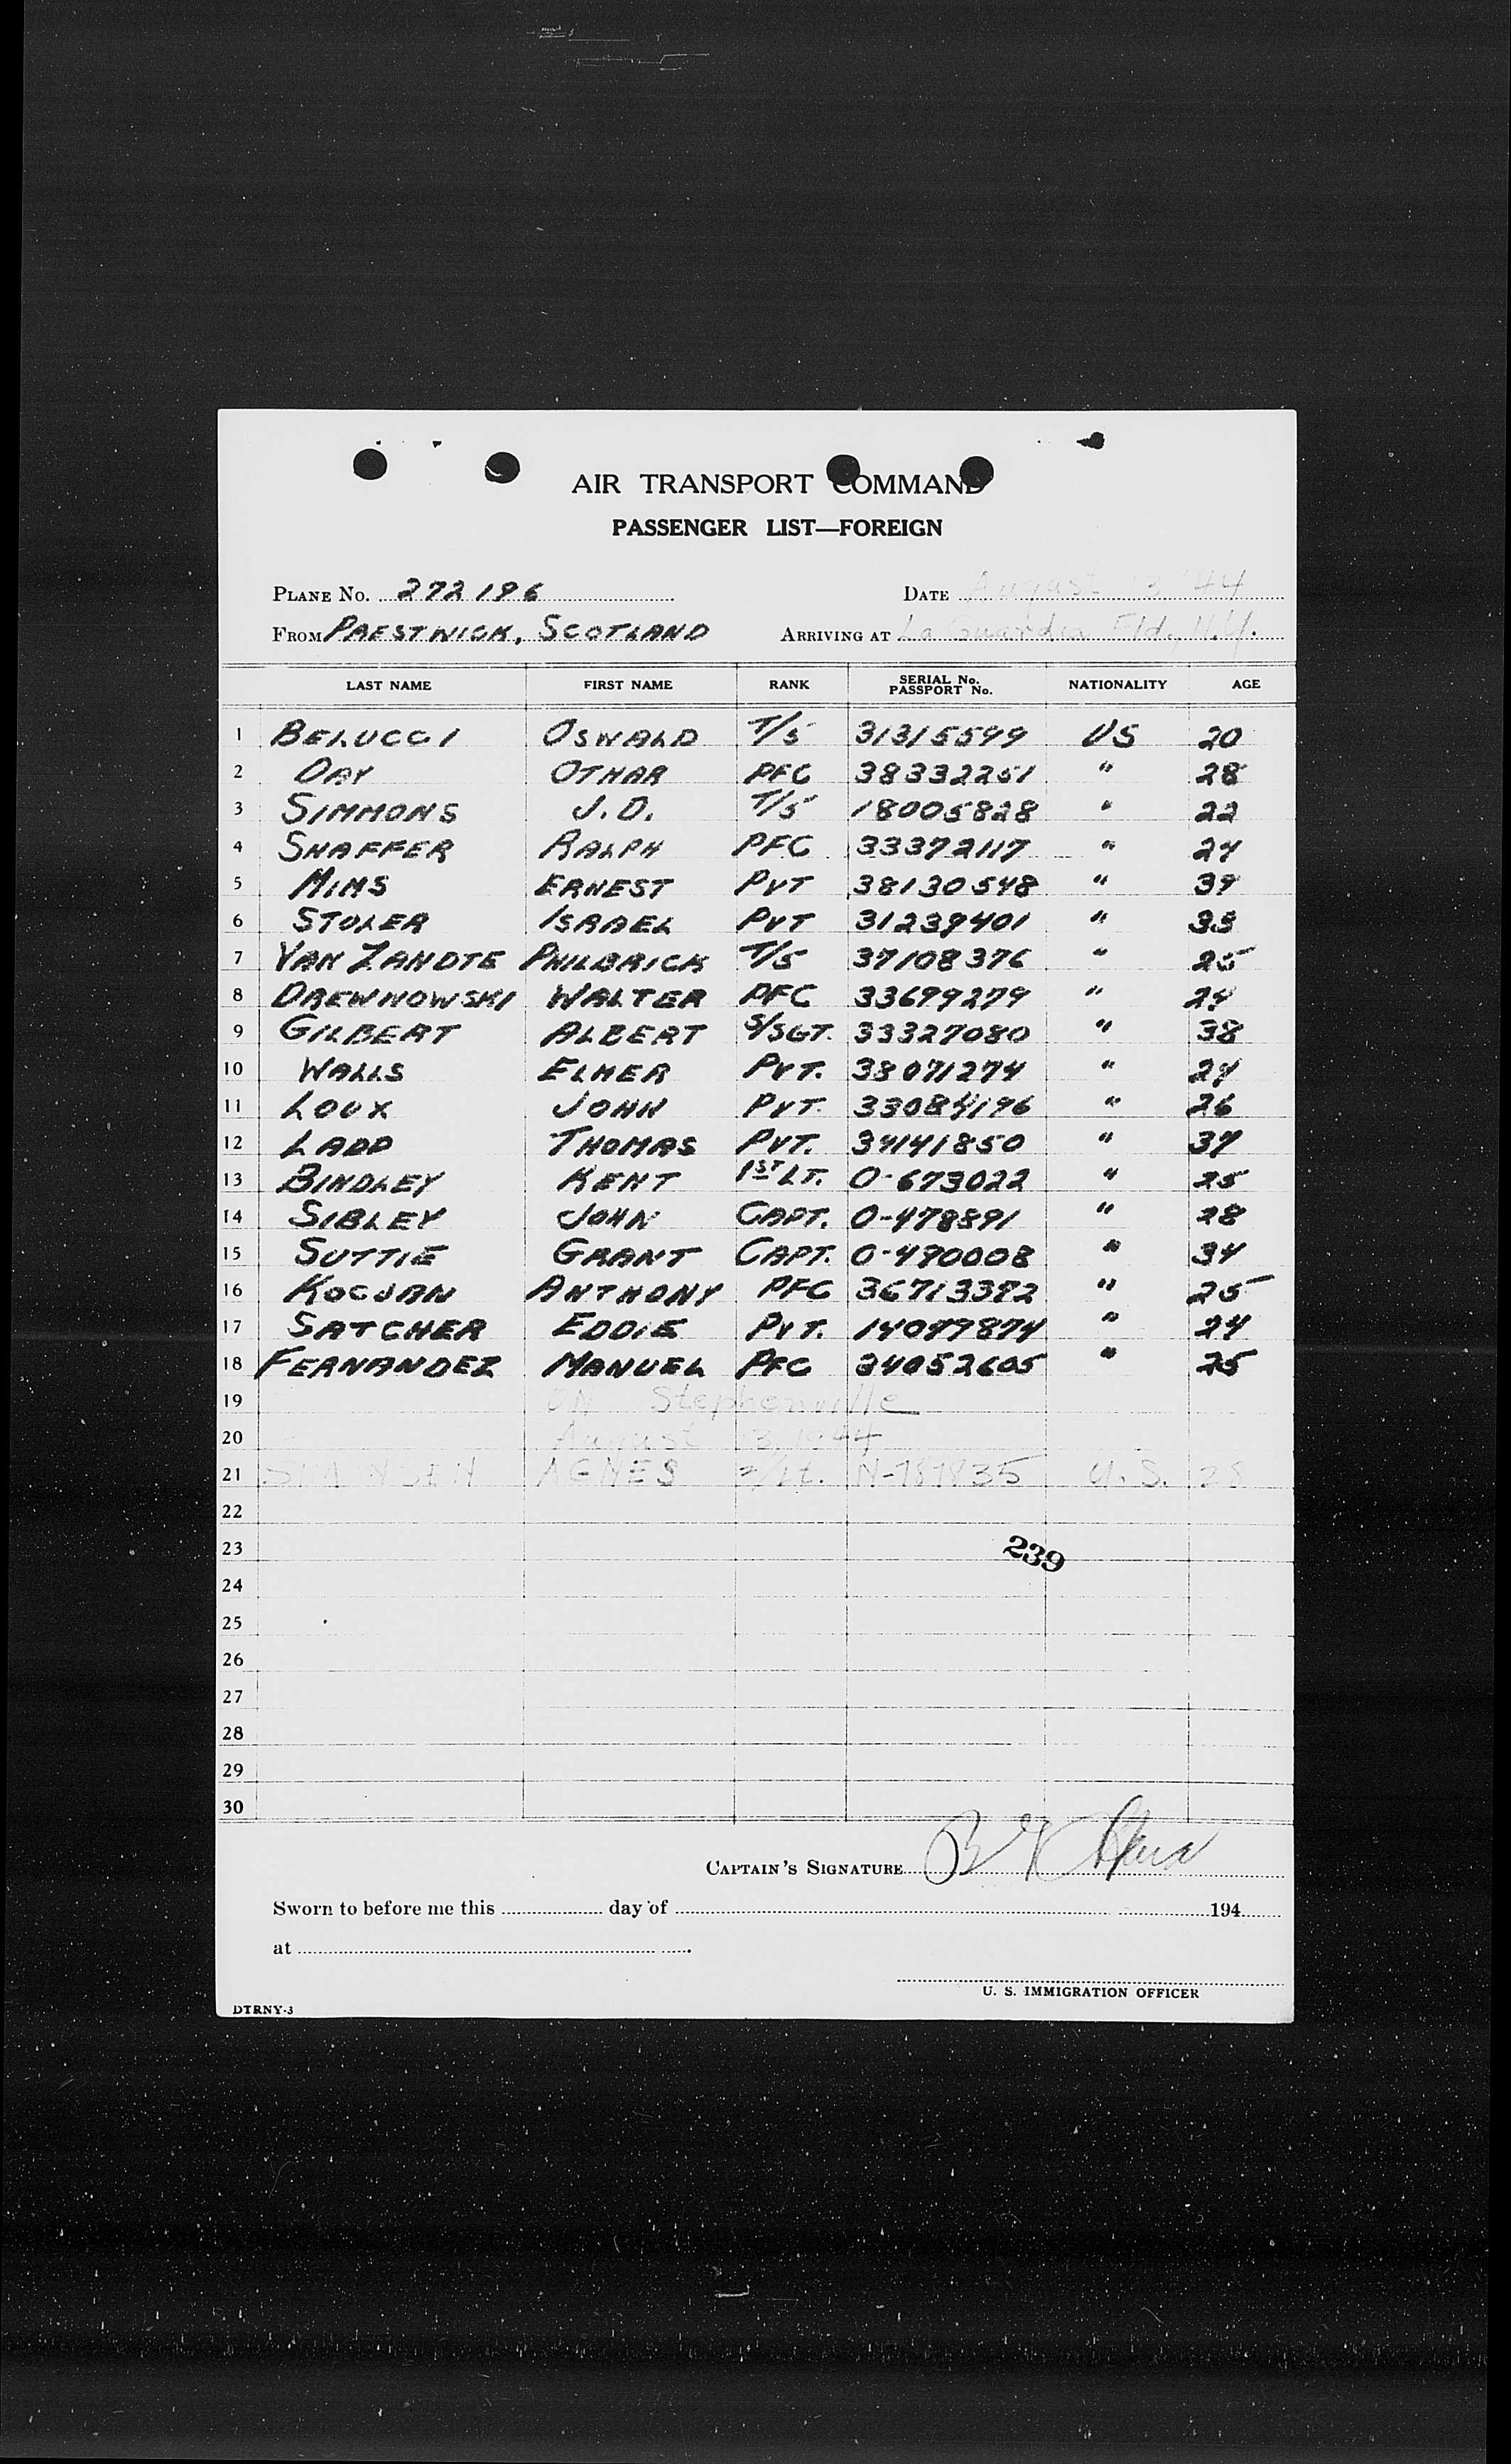 AIR TRANSPORT COMMAND
PASSENGER LIST—FOREIGN
PLANE NO. 272196 DATE August 13 '44
FROM PRESTWICK, SCOTLAND ARRIVING AT La Guardia Fld., N.Y.
LAST NAME FIRST NAME RANK SERIAL No. PASSPORT No. NATIONALITY AGE
1 BELUCCI OSWALD T/5 31315599 US 20
2 DAY OTHAR PFC 38332251 " 28
3 SIMMONS J.D. T/5 18005828 " 22
4 SHAFFER RALPH PFC 33372117 " 24
5 MIMS ERNEST PVT 38130548 " 39
6 STOLER ISRAEL PVT 31239401 " 33
7 VAN ZANDTE PHILBRICK T/5 37108376 " 25
8 DREWNOWSKI WALTER PFC 33699279 " 24
9 GILBERT ALBERT S/SGT. 33327080 " 38
10 WALLS ELMER PVT. 38071274 " 24
11 LOUX JOHN PVT. 33084196 " 26
12 LADD THOMAS PVT. 34141850 " 37
13 BINDLEY KENT 1ST LT. O-673022 " 25
14 SIBLEY JOHN CAPT. O-478891 " 28
15 SUTTIE GRANT CAPT. O-490008 " 34
16 KOCJAN ANTHONY PFC 36713392 " 25
17 SATCHER EDDIE PVT. 14099874 " 24
18 FERNANDEZ MANUEL PFC 34052605 " 25
19 ON Stephenville
20 August 13, 1944
21 AGNES 2/Lt. N-787835 U.S. 28
22
23
239
24
25
26
27
28
29
30
CAPTAIN'S SIGNATURE
Sworn to before me this day of 194
at
U. S. IMMIGRATION OFFICER
DTRNY-3